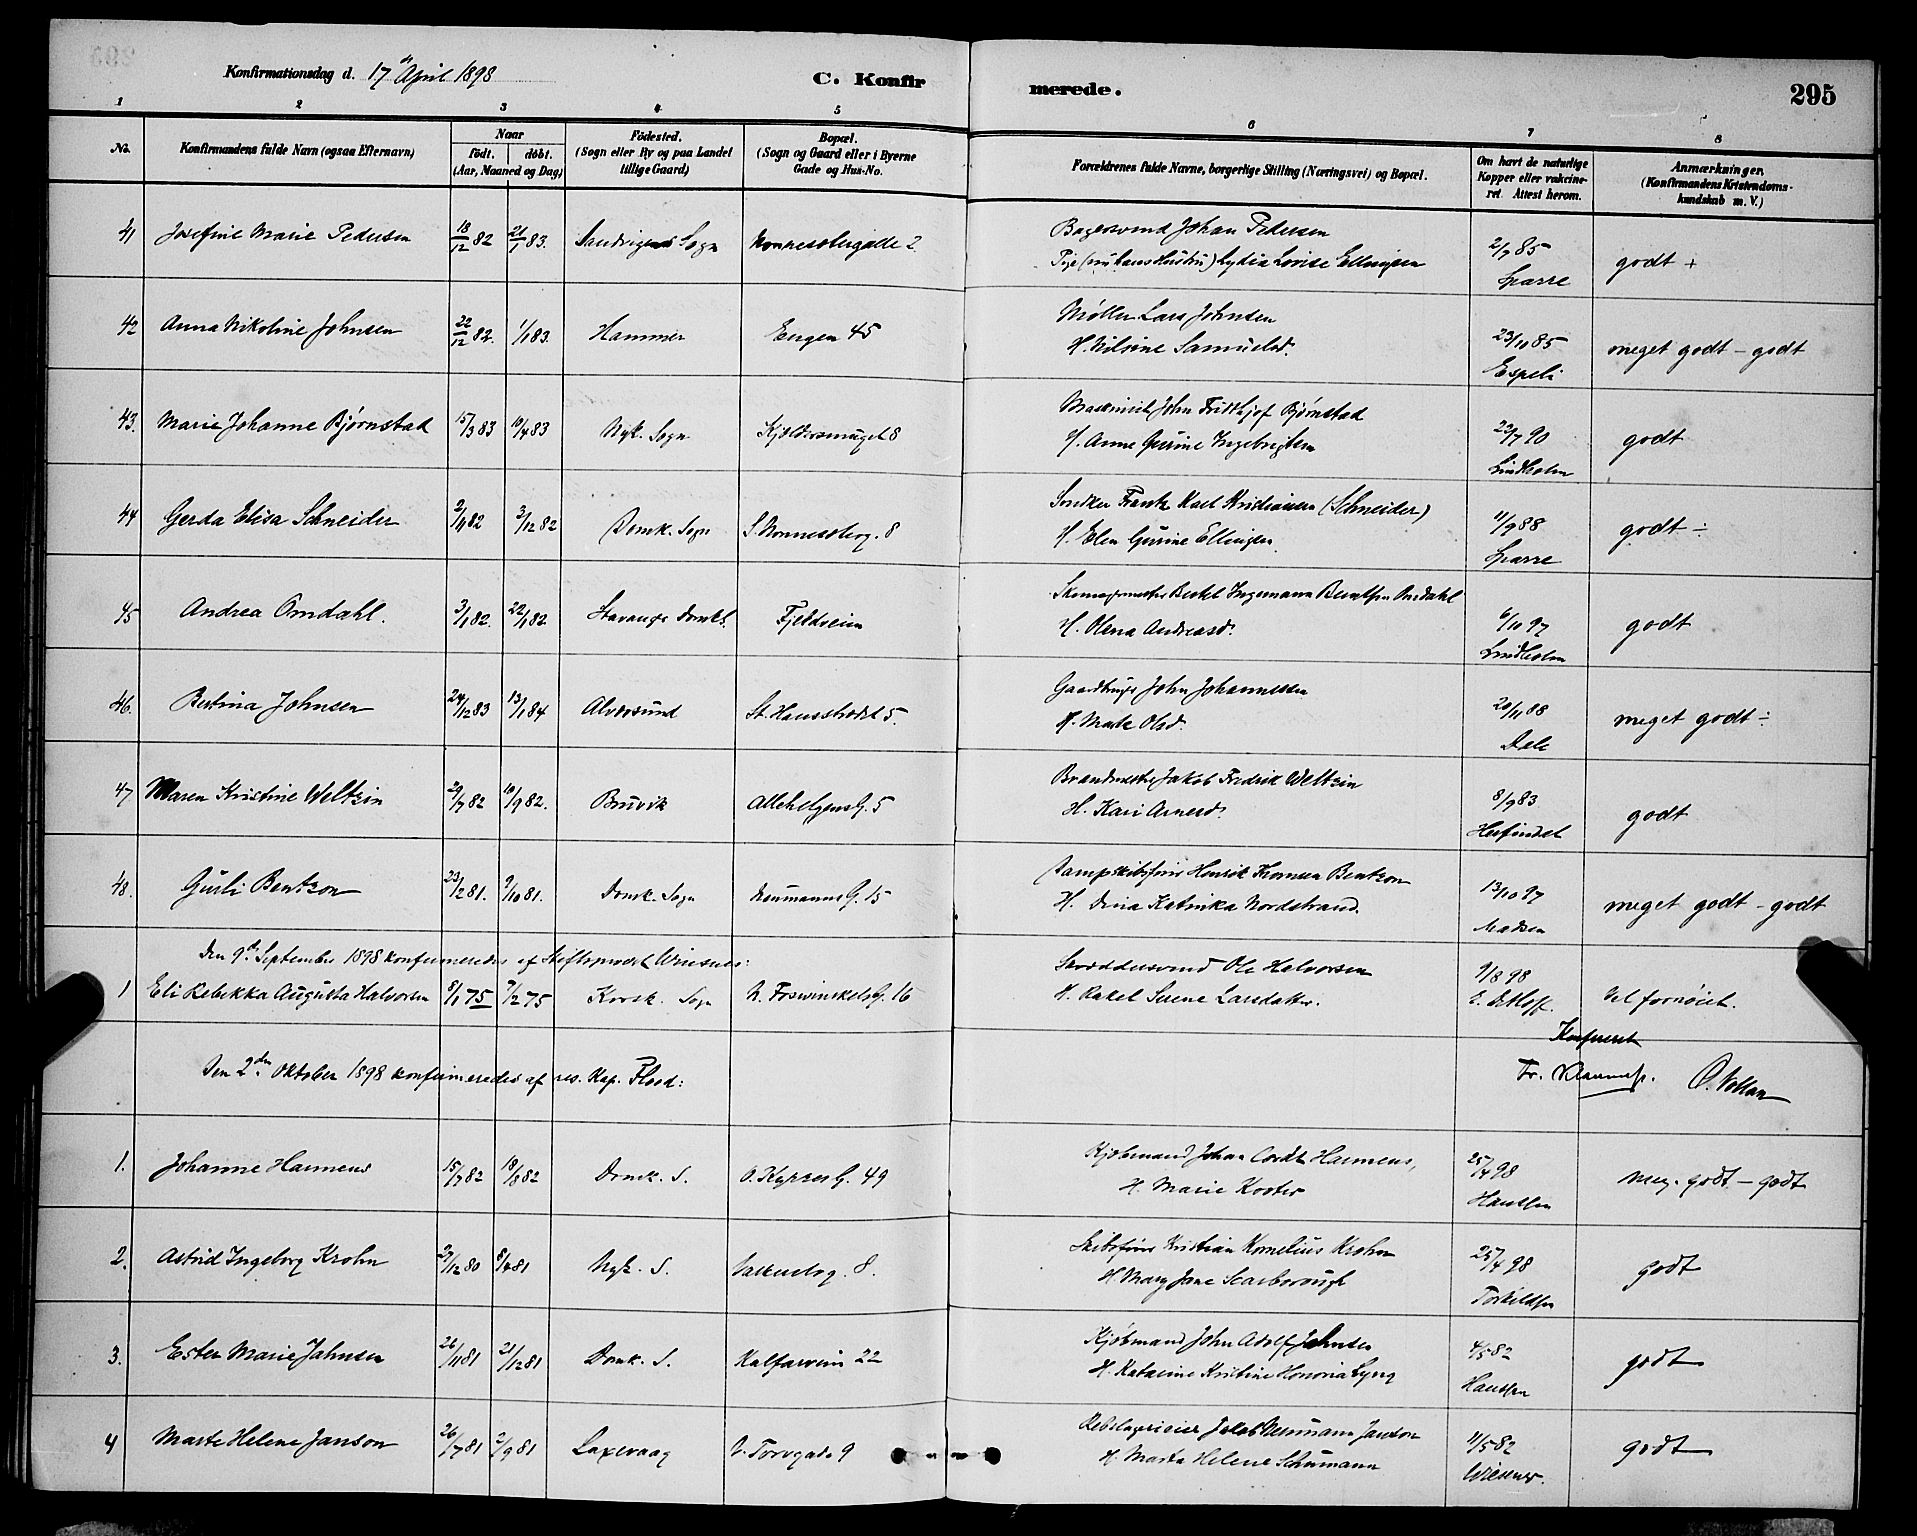 Konfirmationsdag d. 17de April 1898
C. Konfirmerede.
295
1 2 3 4 5 6 7 8
No.
Konfirmandens fulde Navn (ogsaa Efternavn)
Naar
födt. döbt.
(Aar, Maaned og Dag)
Födested.
(Sogn eller By og paa Landet
tillige Gaard)
Bopæl.
(Sogn og Gaard eller i Byerne
Gade og Hus-No.
Forældrenes fulde Navne, borgerlige Stilling (Næringsvei) og Bopæl.
Om havt de naturlige
Kopper eller vakcine-
ret. Attest herom.
Anmærkninger.
(Konfirmandens Kristendoms-
kundskab m. V.)
41 Josefine Marie Pedersen 18/12 82 21/1 83. Sandvigens Sogn Nonnestergade 2 Bagersvend Johan Pedersen 2/7 85 godt +
Pige (nu hans Hustru) Lydia Lovise Ellingsen Sparre
42 Anna Nikoline Johnsen 22/12 82. 1/1 83. Hammer Engen 45 Møller Lars Johnsen 23/10 85 meget godt - godt
H. Nilsine Samuelsd. Espeli
43. Marie Johanne Bjørnstad 15/3 83 10/4 83 Nyk. Sogn Kjeldersmuget 8 Maskinist John Fridthjof Bjørnstad 22/7 90 godt
H. Anne Gurine Ingebrigtsen Lindholm
44 Gerda Elisa Schneider 2/11 82 3/12 82 Domk. Sogn S. Nonnesterg. 8 Snedker Frantz Karl Kristiansen (Schneider) 11/9 88 godt ÷
H. Elen Gurine Ellingsen Sparre
45 Andrea Omdahl. 3/1 82. 22/1 82 Stavanger Domk. Fjeldveien Skomagermester Bertel Ingemann Berntsen Omdahl 6/10 97 godt
H. Olena Andreasd. Lindholm
46. Bertina Johnsen 24/12 83 13/1 84 Alversund St. Hansstrædet 5. Gaardbruger John Johannessen 20/11 88 meget godt ÷
H. Marte Olsd. Dale
47 Maren Kristine Weltzin 29/7 82 10/9 82. Bruvik Allehelgens G. 5 Brandmester Jakob Fredrik Weltzin 8/9 83 godt
H. Kari Arnesd. Herfindal
48. Gurli Bentzon 23/2 81. 9/10 81. Domk. Sogn Neumanns G. 15 Dampskibsfører Henrik Thomsen Bentzon 13/10 97 meget godt - godt
H. Dina Katinka Nordstrand. Madsen
Den 9de September 1898 konfirmeredes af Stiftsprovst Wiesner:
1 Eli Rebekka Augusta Halvorsen 8/1 75 7/2 75 Korsk. Sogn N. Forswinkels G. 16 Skræddersvend Ole Halvorsen 9/8 98 Vel fornøiet.
H. Rakel Serene Larsdatter.
Konfereret
Den 2den Oktober 1898 konfirmeredes af res. Kap. Flood: O. Vollan
1. Johanne Harmens 15/7 82 18/8 82 Domk. S. O. Kyrres G. 49 Kjøbmand Johan Cordt Harmens, 25/4 98 meg. godt - godt
H. Marie Koster Hanssen
2. Astrid Ingeborg Krohn 27/12 80 8/4 81 Nyk. S. Valkendorfsg. 8. Skibsfører Kristian Kornelius Krohn 25/4 98 godt
H. Mary Jane Scarborough Torkildsen
3. Ester Marie Jahnsen 26/11 81 21/12 81 Domk. S. Kalfarveien 22 Kjøbmand John Adolf Jahnsen 4/5 82 godt
H. Katarine Kristine Honoria Lyng Hanssen
4 Marte Helene Janson 26/7 81 2/9 81 Laxevaag N. Torvgade 9 Rebslagerieier Jakob Neumann Janson 11/5 82 godt
H. Marta Helene Schumann Wiesener.